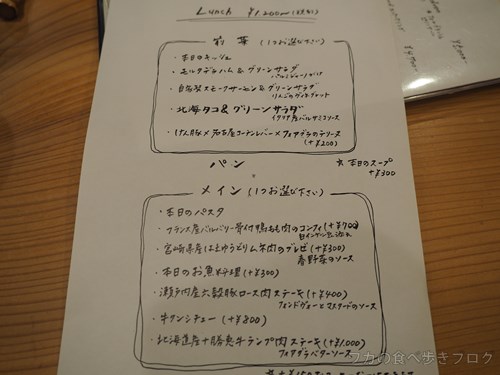 Lunch ¥1,200 (税別)
前菜 (1つお選び下さい)
・本日のキッシュ
・モルタデラハム & グリーンサラダ
・自家製スモークサーモン & グリーンサラダ
りんごのヴィネグレット
・北海タコ & グリーンサラダ
イタリア産バルサミコソース
・げん豚×名古屋コーチンレバー×フォアグラのテリーヌ
(+¥200)
パン
★ 本日のスープ
+¥300
メイン (1つお選び下さい)
・本日のパスタ
・フランス産バルバリー骨付鴨もも肉のコンフィ (+¥700)
・宮崎県産はまゆうどりムネ肉のブレゼ (+¥300)
春野菜のソース
・本日のお魚料理 (+¥300)
・瀬戸内産六穀豚ロース肉ステーキ (+¥400)
フォンドヴォーとマスタードのソース
・牛タンシチュー (+¥800)
・北海道産十勝恵牛ランプ肉ステーキ (+¥1,000)
フォアグラバターソース
フカの食べ歩きブログ